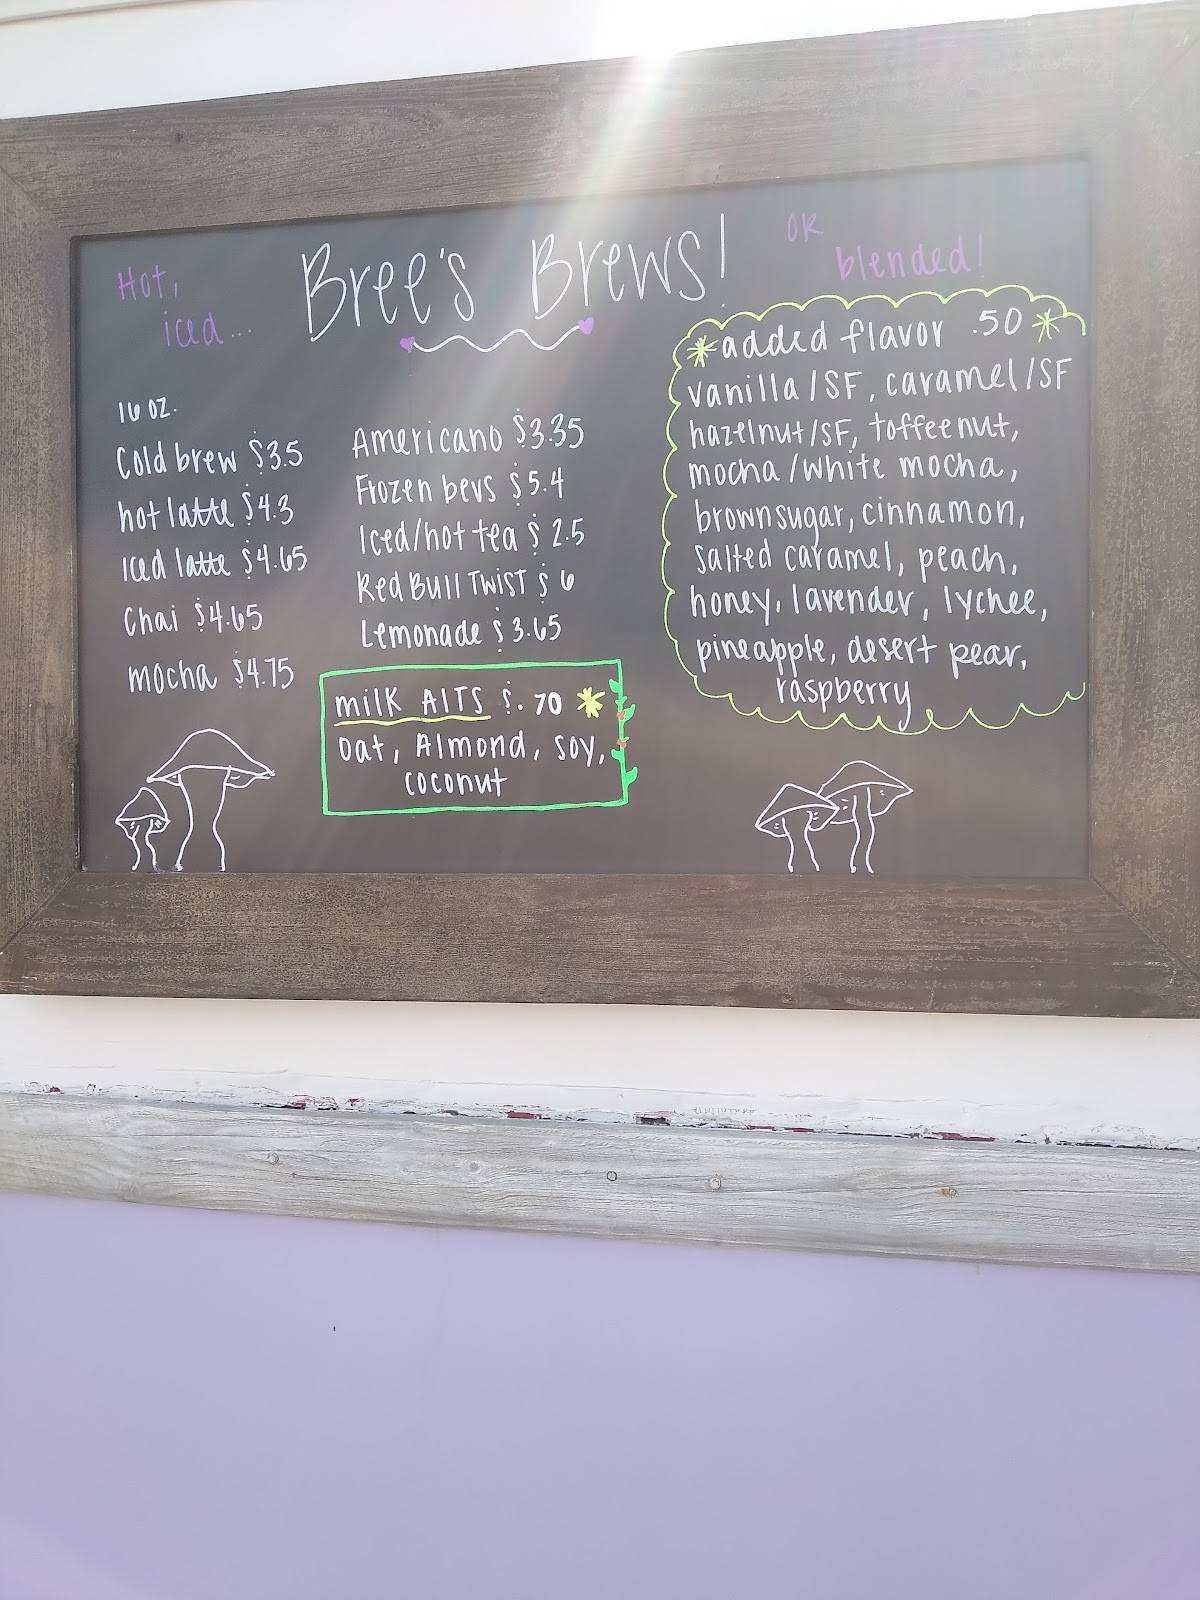 Hot,
iced...
Bree's Brews!
OR
blended!
16 oz.
Cold brew $3.5
hot latte $4.3
Iced latte $4.65
Chai $4.65
mocha $4.75
Americano $3.35
Frozen bevs $5.4
Iced/hot tea $2.5
Red Bull Twist $6
Lemonade $3.65
milk Alts $.70
Oat, Almond, soy,
coconut
added flavor .50
vanilla/SF, caramel/SF
hazelnut/SF, toffeenut,
mocha/white mocha,
brownsugar, cinnamon,
salted caramel, peach,
honey, lavender, lychee,
pineapple, desert pear,
raspberry